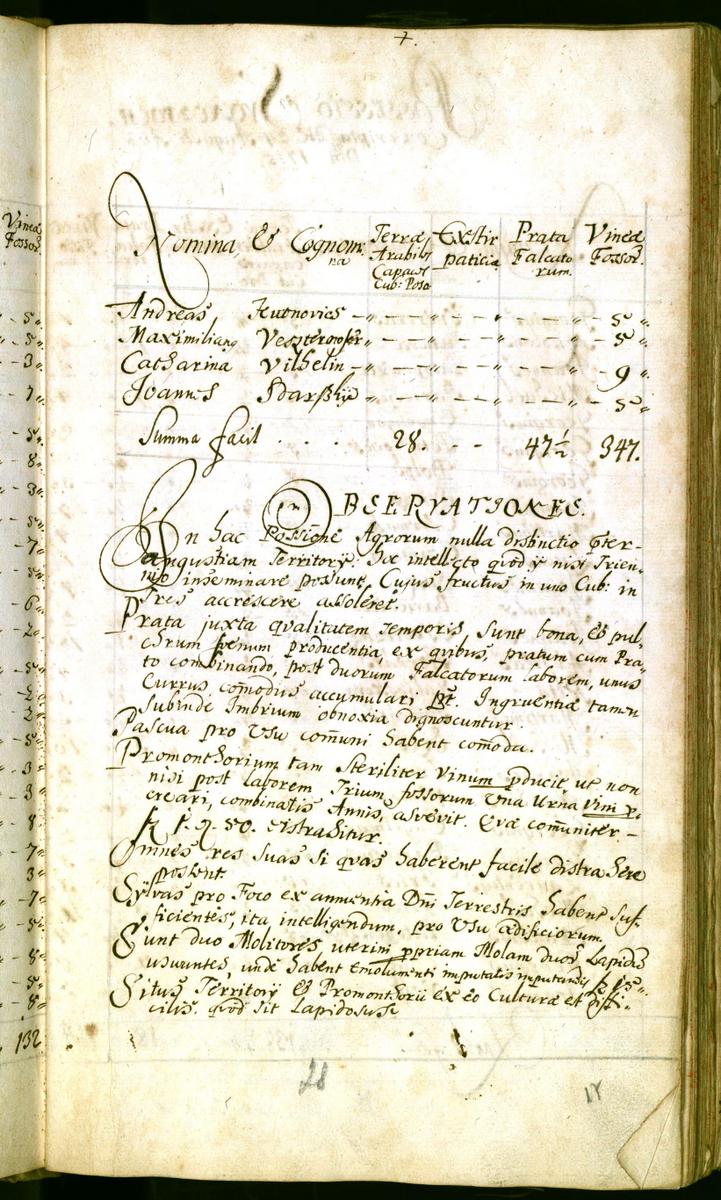 7.
Nomina, & Cognomina
Terræ Arabil. Capaces Cub: Poso
Exstirpaticia
Prata Falcatorum.
Vineæ Fossor.
Andreas Hutnovics - „ - - „ - - „ - - „ - 5 „
Maximiliang - „ - - „ - - „ - - „ - 5 „
Catharina Vilhelm - „ - - „ - - „ - - „ - 9 „
Joannes - „ - - „ - - „ - - „ - 5 „
Summa facit . . . 28. - - 47½ 347.
OBSERVATIONES.
In hac Possne Agrorum nulla distinctio pter
angustiam Territorÿ: Hæ intellecto qvod y nisi Trien-
nio inseminare possunt, Cujus fructus in uno Cub: in
Tres accrescere assoleret.
Prata juxta qvalitatem temporis, sunt bona, & pul-
chrum fænum producentia, ex qvibus, pratum cum Pra-
to combinando, post duorum Falcatorum laborem, unus
Currus comodus accumulari pt. Ingruentiæ tamen
subinde Imbrium obnoxia dignoscuntur.
Pascua pro Usu comuni habent comoda.
Promonthorium tam Steriliter Vinum pducit, ut non
nisi post laborem Trium fossorum Una Urna Vini p-
creari, combinatis Annis, asvevit. Qvæ comuniter -
f. 1. 50. distrahitur.
Omnes res suas si qvas haberent facile distrahere
possent.
Sylvas pro Foco ex annuentia Dni Terrestris habent suf-
ficientes, ita intelligendum, pro Usu ædificiorum.
Sunt duo Molitores uterini ppriam Molam duor Lapidis
usuantes, unde habent Emolumenti imputatis imputandis f 15 „
Situs Territorÿ & Promonthorii ex eo Culturæ est diffi-
cilis, qvod sit Lapidosus
132
28